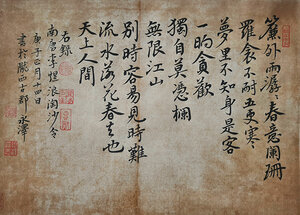 簾外雨潺々春意闌珊
羅衾不耐五更寒
夢裏不知身是客
一晌貪歡
獨自莫憑欄
無限江山
別時容易見時難
流水落花春去也
天上人間
右錄
南唐李煜浪淘沙令
庚子正月十四日
書於隴西古郡 永澤